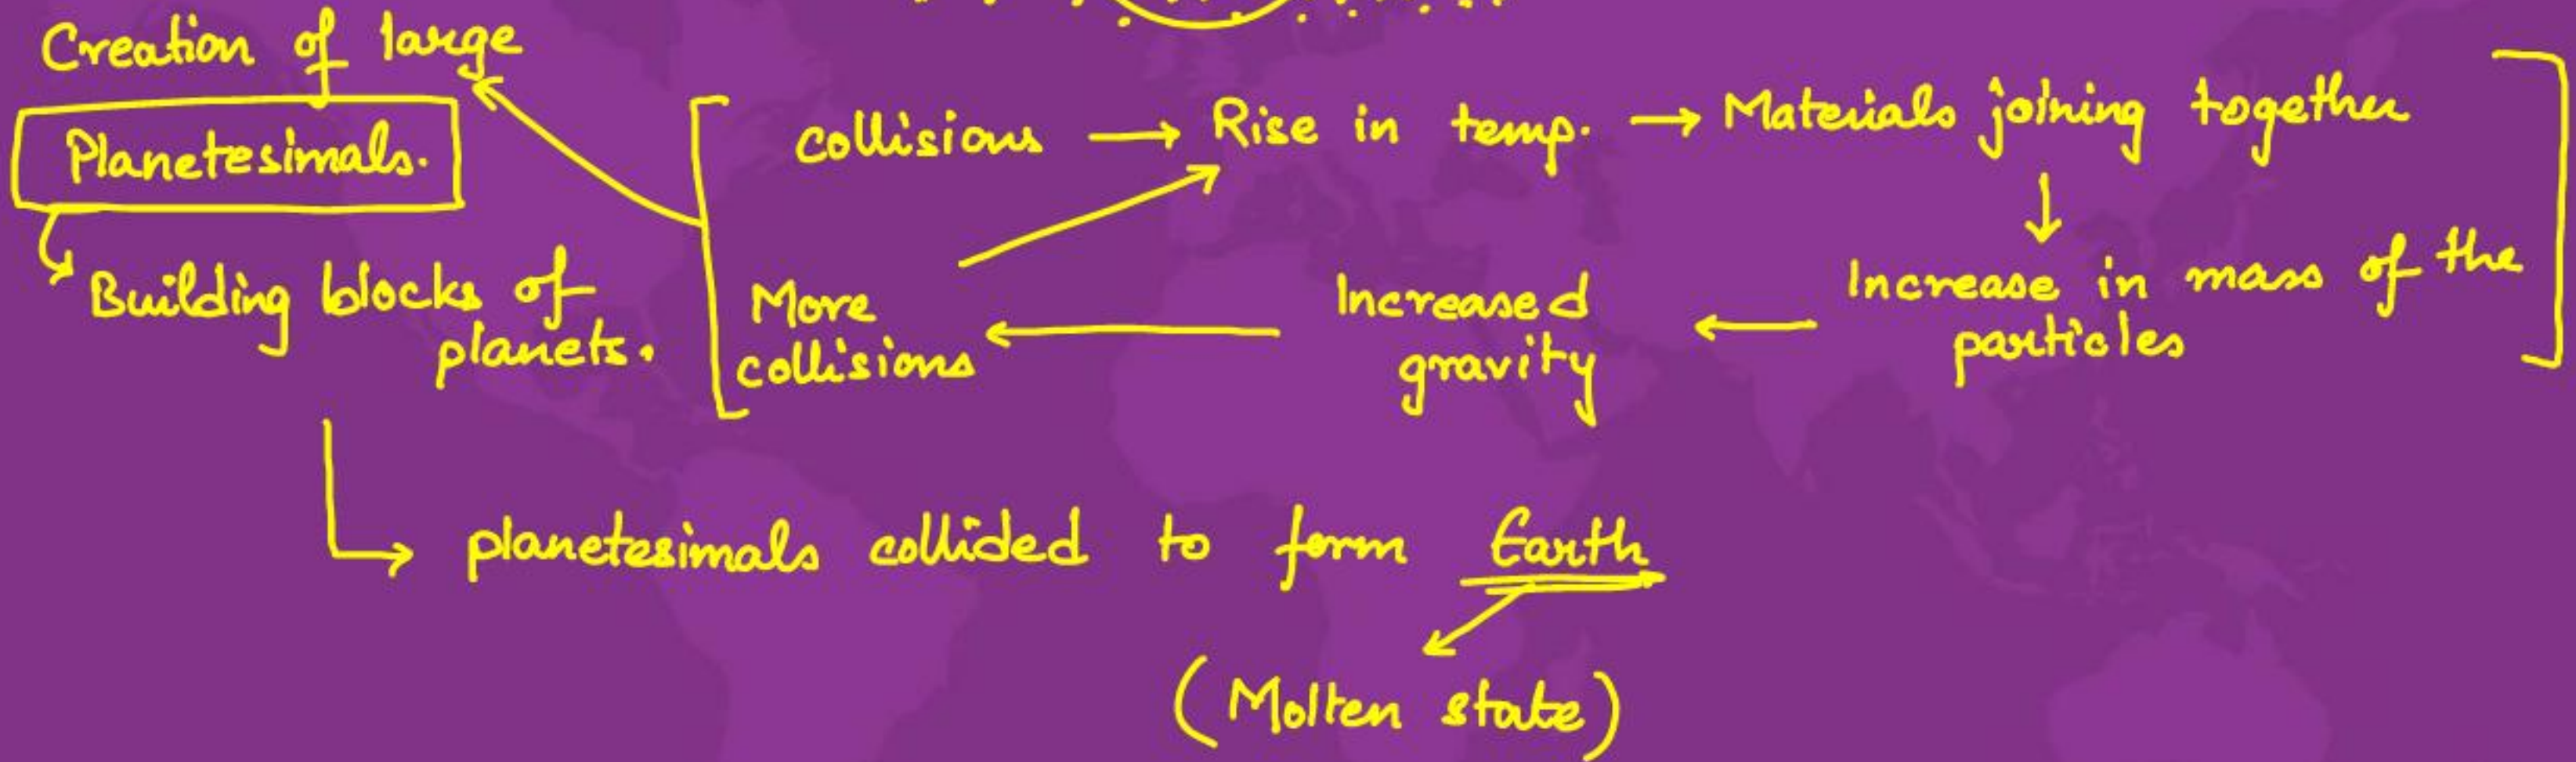 Creation of large
Planetesimals.
Building blocks of
planets.
collisions → Rise in temp. → Materials joining together
↓
Increase in mass of the
particles
← Increased
gravity
← More
collisions
→ planetesimals collided to form Earth
(Molten state)